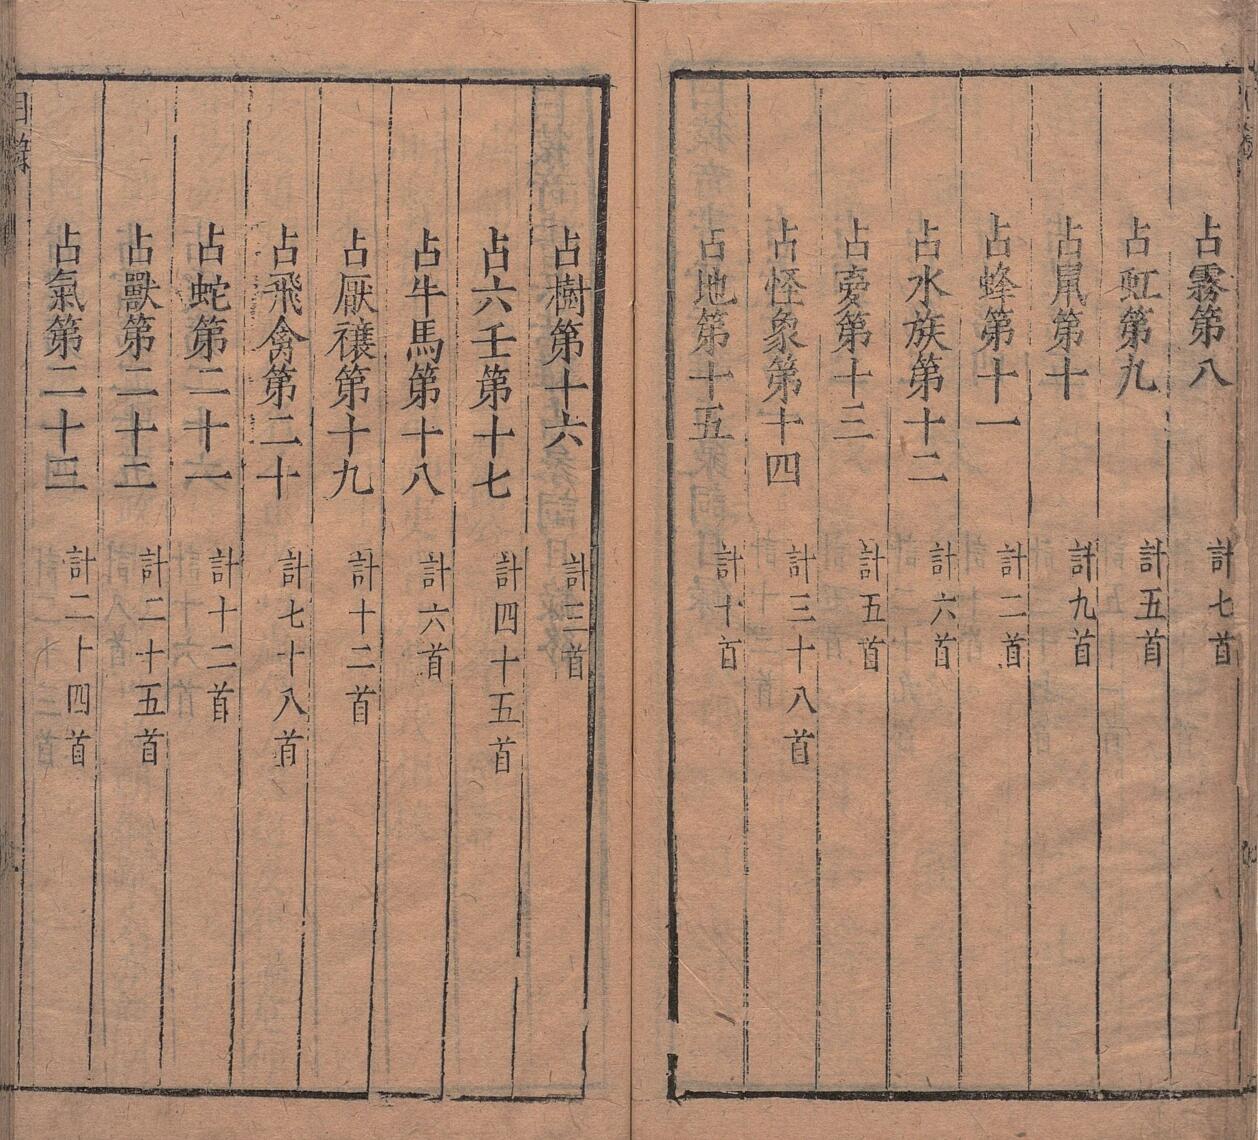 占霧第八 計七首
占虹第九 計五首
占鼠第十 計九首
占蜂第十一 計二首
占水族第十二 計六首
占夢第十三 計五首
占怪象第十四 計三十八首
占地第十五 計十首
占樹第十六 計三首
占六壬第十七 計四十五首
占牛馬第十八 計六首
占厭禳第十九 計十二首
占飛禽第二十 計七十八首
占蛇第二十一 計十二首
占獸第二十二 計二十五首
占氣第二十三 計二十四首
目錄